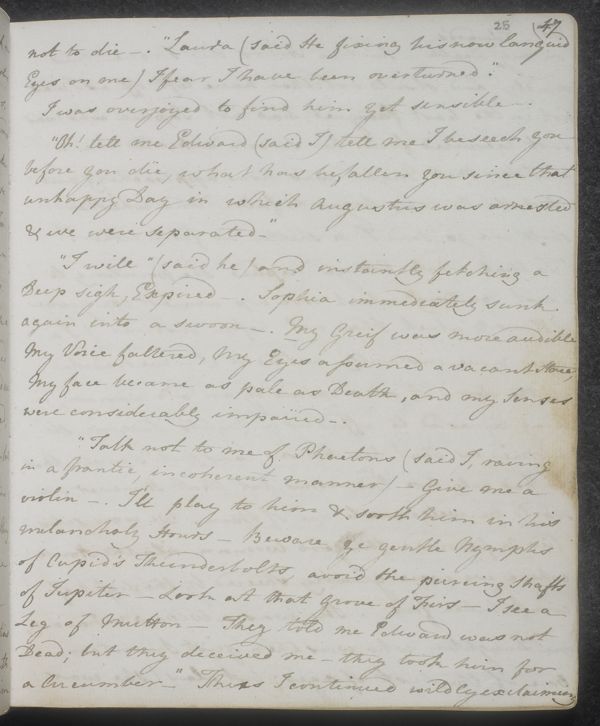 28 47
not to die —. "Laura (said He fixing his now languid
Eyes on me) I fear I have been overturned".
I was overjoyed to find him yet sensible —.
"Oh! tell me Edward (said I) tell me I beseech you
before you die, what has befallen you since that
unhappy Day in which Augustus was arrested
& we were separated—"
"I will" (said he) and instantly fetching a
Deep sigh, Expired —. Sophia immediately sunk
again into a swoon —. My Greif was more audible,
My Voice faltered, My Eyes assumed a vacant Stare,
My face became as pale as Death, and my Senses
were considerably impaired —.
"Talk not to me of Phaetons (said I, raving
in a frantic, incoherent manner) — Give me a
violin —. I'll play to him & sooth him in his
melancholy Hours — Beware ye gentle Nymphs
of Cupid's Thunderbolts, avoid the piercing Shafts
of Jupiter — Look at that Grove of Firs — I see a
Leg of Mutton — They told me Edward was not
Dead; but they deceived me — they took him for
a Cucumber —" Thus I continued wildly exclaiming